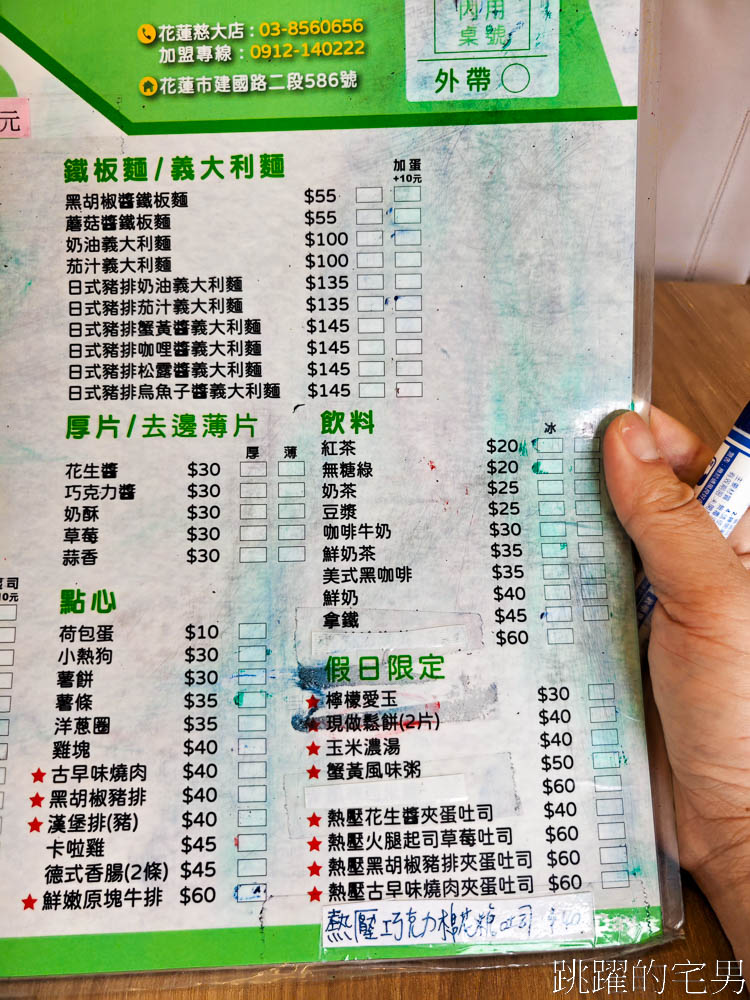 花蓮慈大店：03-8560656
加盟專線：0912-140222
花蓮市建國路二段586號
內用
桌號
外帶
元
鐵板麵/義大利麵
加蛋
+10元
黑胡椒醬鐵板麵 $55
蘑菇醬鐵板麵 $55
奶油義大利麵 $100
茄汁義大利麵 $100
日式豬排奶油義大利麵 $135
日式豬排茄汁義大利麵 $135
日式豬排蟹黃醬義大利麵 $145
日式豬排咖哩醬義大利麵 $145
日式豬排松露醬義大利麵 $145
日式豬排烏魚子醬義大利麵 $145
厚片/去邊薄片
厚 薄
花生醬 $30
巧克力醬 $30
奶酥 $30
草莓 $30
蒜香 $30
飲料
冰
紅茶 $20
無糖綠 $20
奶茶 $25
豆漿 $25
咖啡牛奶 $30
鮮奶茶 $35
美式黑咖啡 $35
鮮奶 $40
拿鐵 $45
$60
司
0元
點心
荷包蛋 $10
小熱狗 $30
薯餅 $30
薯條 $35
洋蔥圈 $35
雞塊 $40
★古早味燒肉 $40
★黑胡椒豬排 $40
★漢堡排(豬) $40
卡啦雞 $45
德式香腸(2條) $45
★鮮嫩原塊牛排 $60
假日限定
★檸檬愛玉 $30
★現做鬆餅(2片) $40
★玉米濃湯 $40
★蟹黃風味粥 $50
$60
★熱壓花生醬夾蛋吐司 $40
★熱壓火腿起司草莓吐司 $60
★熱壓黑胡椒豬排夾蛋吐司 $60
★熱壓古早味燒肉夾蛋吐司 $60
熱壓巧克力棉花糖吐司 $40
跳躍的宅男